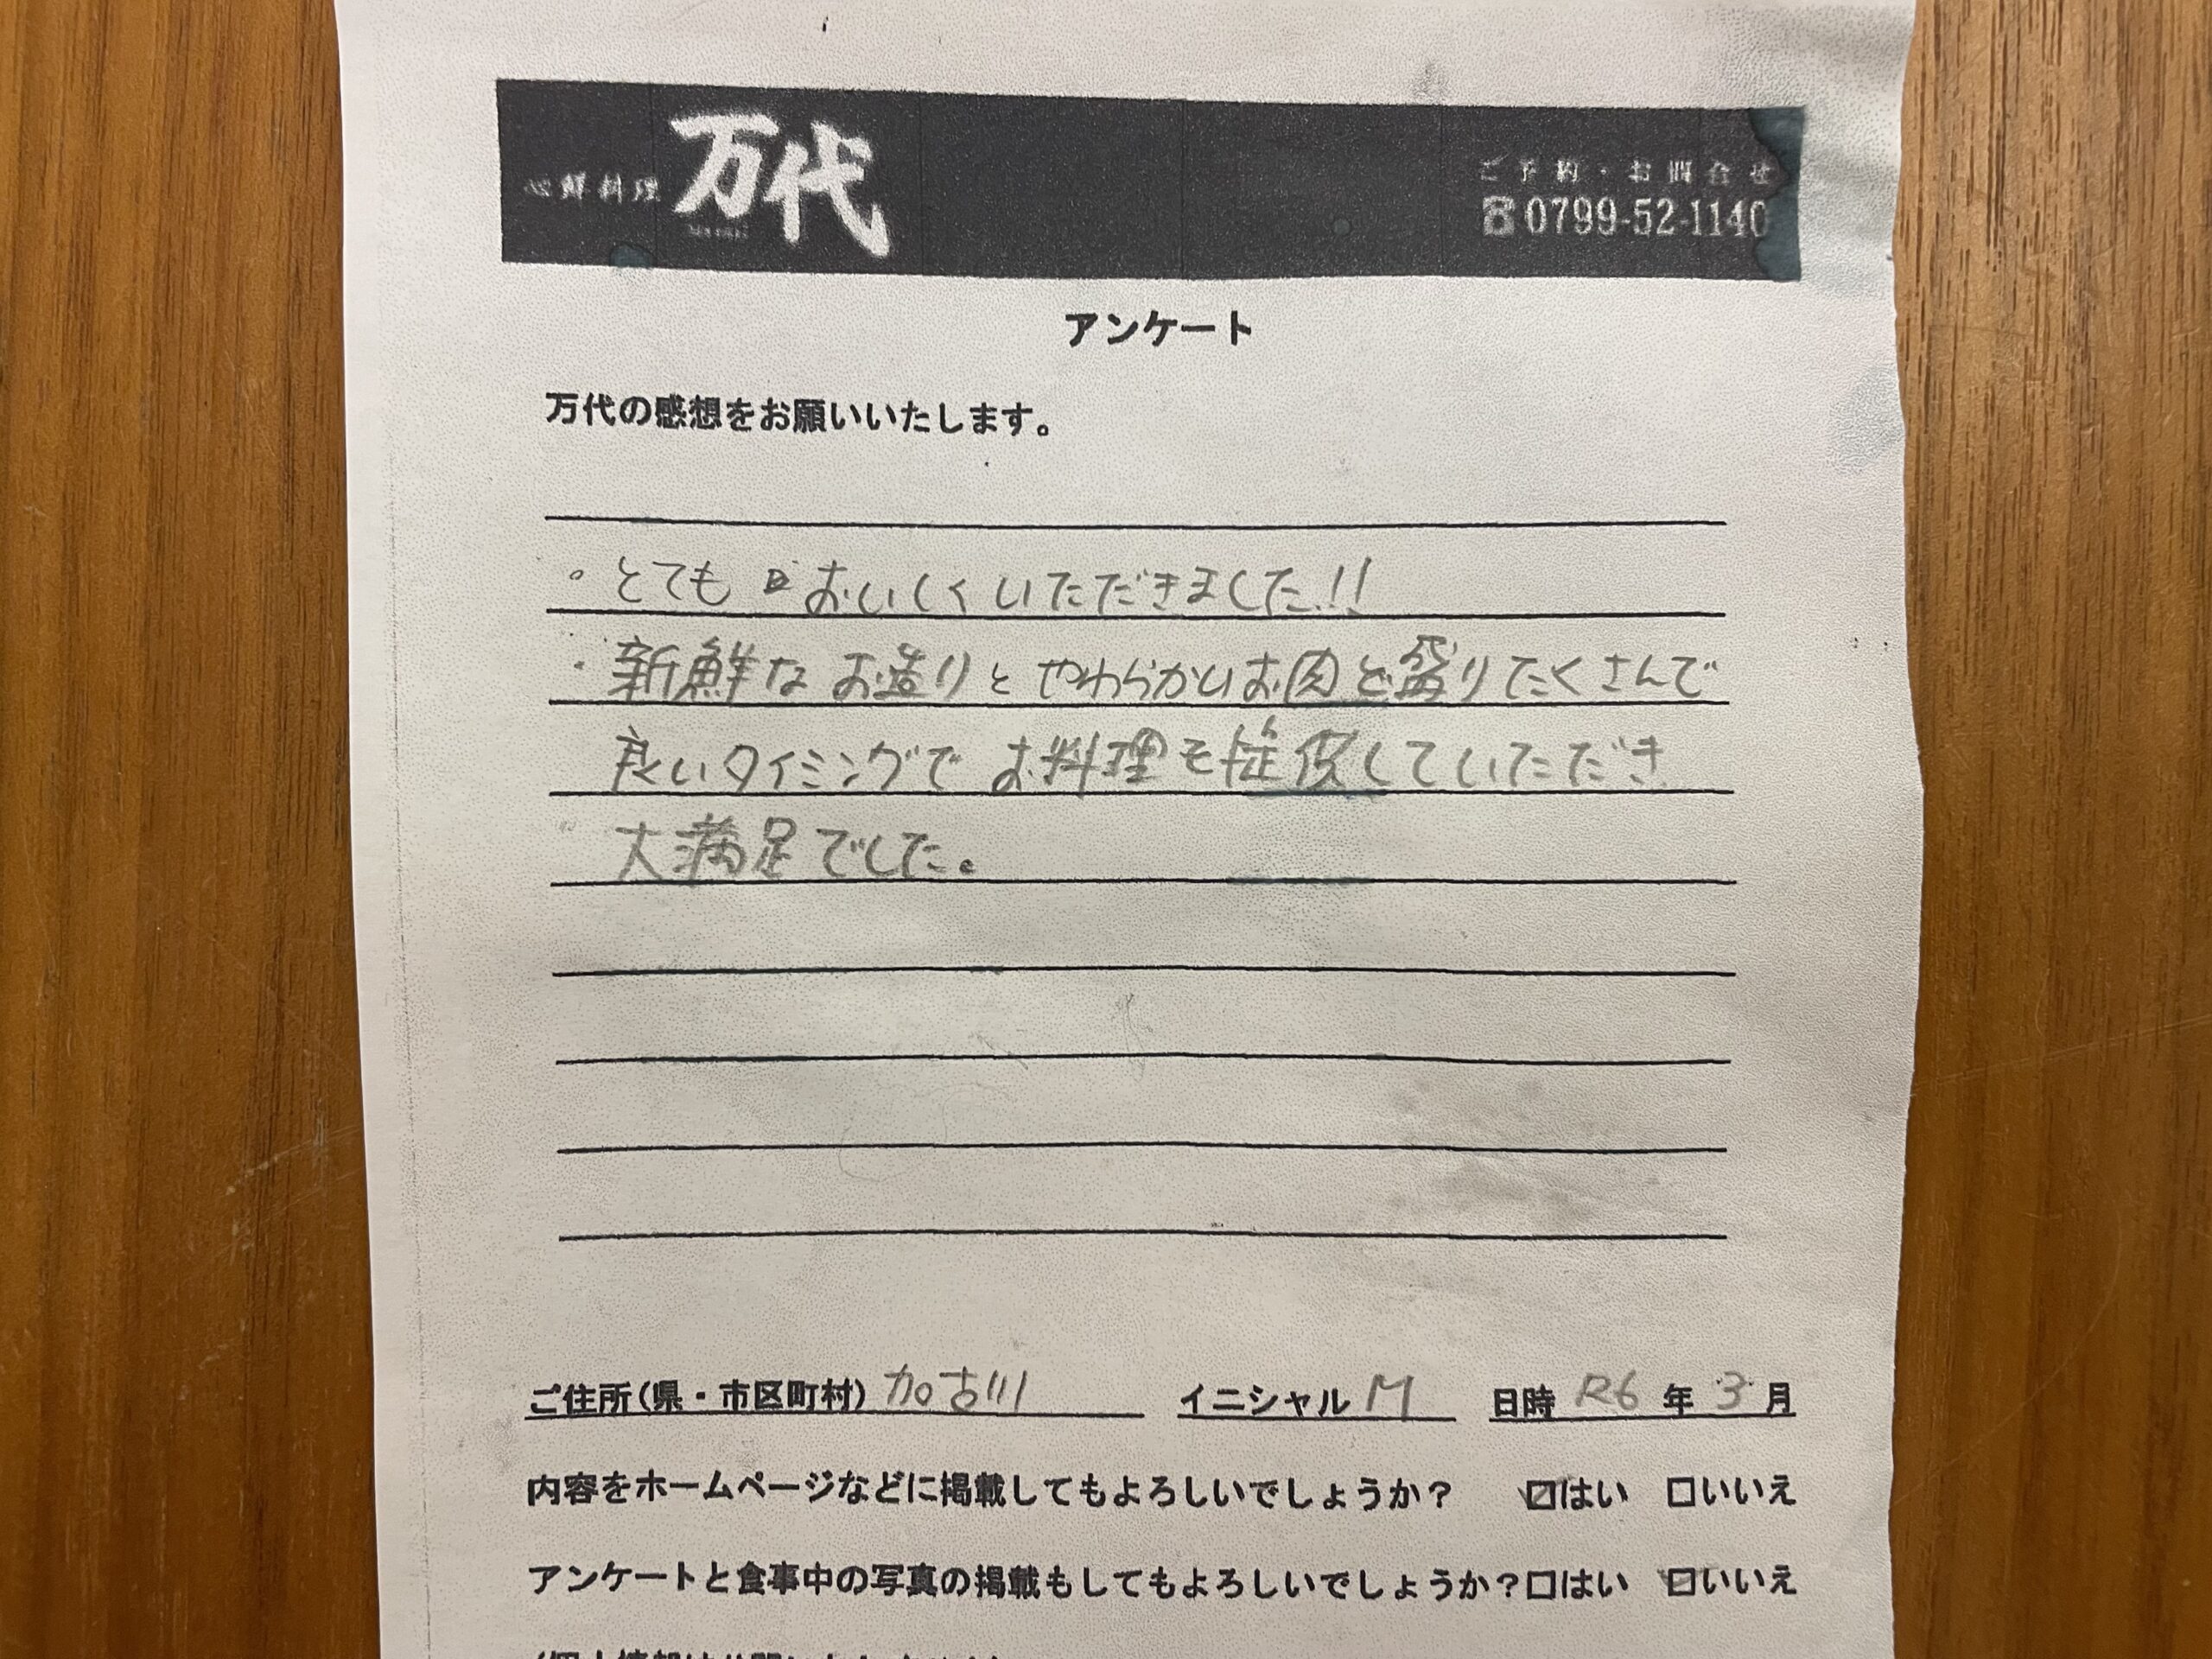 心鮮料理 万代
ご予約・お問合せ
☎0799-52-1140
アンケート
万代の感想をお願いいたします。
。とても おいしくいただきました!!
・新鮮なお造りとやわらかいお肉と盛りたくさんで
良いタイミングでお料理を提供していただき
大満足でした。
ご住所(県・市区町村) 加古川 イニシャル M 日時 R6 年 3 月
内容をホームページなどに掲載してもよろしいでしょうか? ☑はい □いいえ
アンケートと食事中の写真の掲載もしてもよろしいでしょうか?□はい ☑いいえ